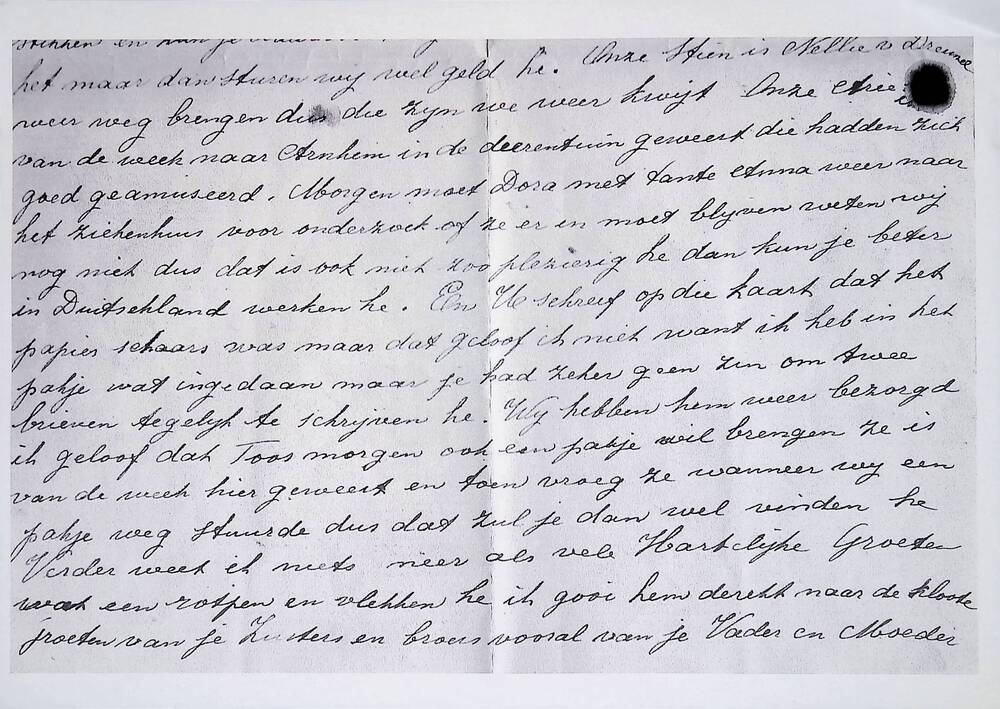 het maar dan sturen wij wel geld he. Onze Stien is Nellie v Dreumel
weer weg brengen dus die zijn we weer kwijt Onze
van de week naar Arnhem in de deerentuin geweest die hadden zich
goed geamuseerd. Morgen moet Dora met tante Anna weer naar
het ziekenhuis voor onderzoek of ze er in moet blijven weten wij
nog niet dus dat is ook niet zoo plezierig he dan kun je beter
in Duitschland werken he. En U schreef op die kaart dat het
papier schaars was maar dat geloof ik niet want ik heb in het
pakje wat ingedaan maar je had zeker geen zin om twee
brieven tegelijk te schrijven he. Wij hebben hem weer bezorgd
ik geloof dat Toos morgen ook een pakje wil brengen ze is
van de week hier geweest en toen vroeg ze wanneer wij een
pakje weg stuurde dus dat zul je dan wel vinden he
Verder weet ik niets meer als vele Hartelijke Groeten
wat een rotpen en vlekken he ik gooi hem derekt naar de kloote
groeten van je Zusters en broers vooral van je Vader en Moeder